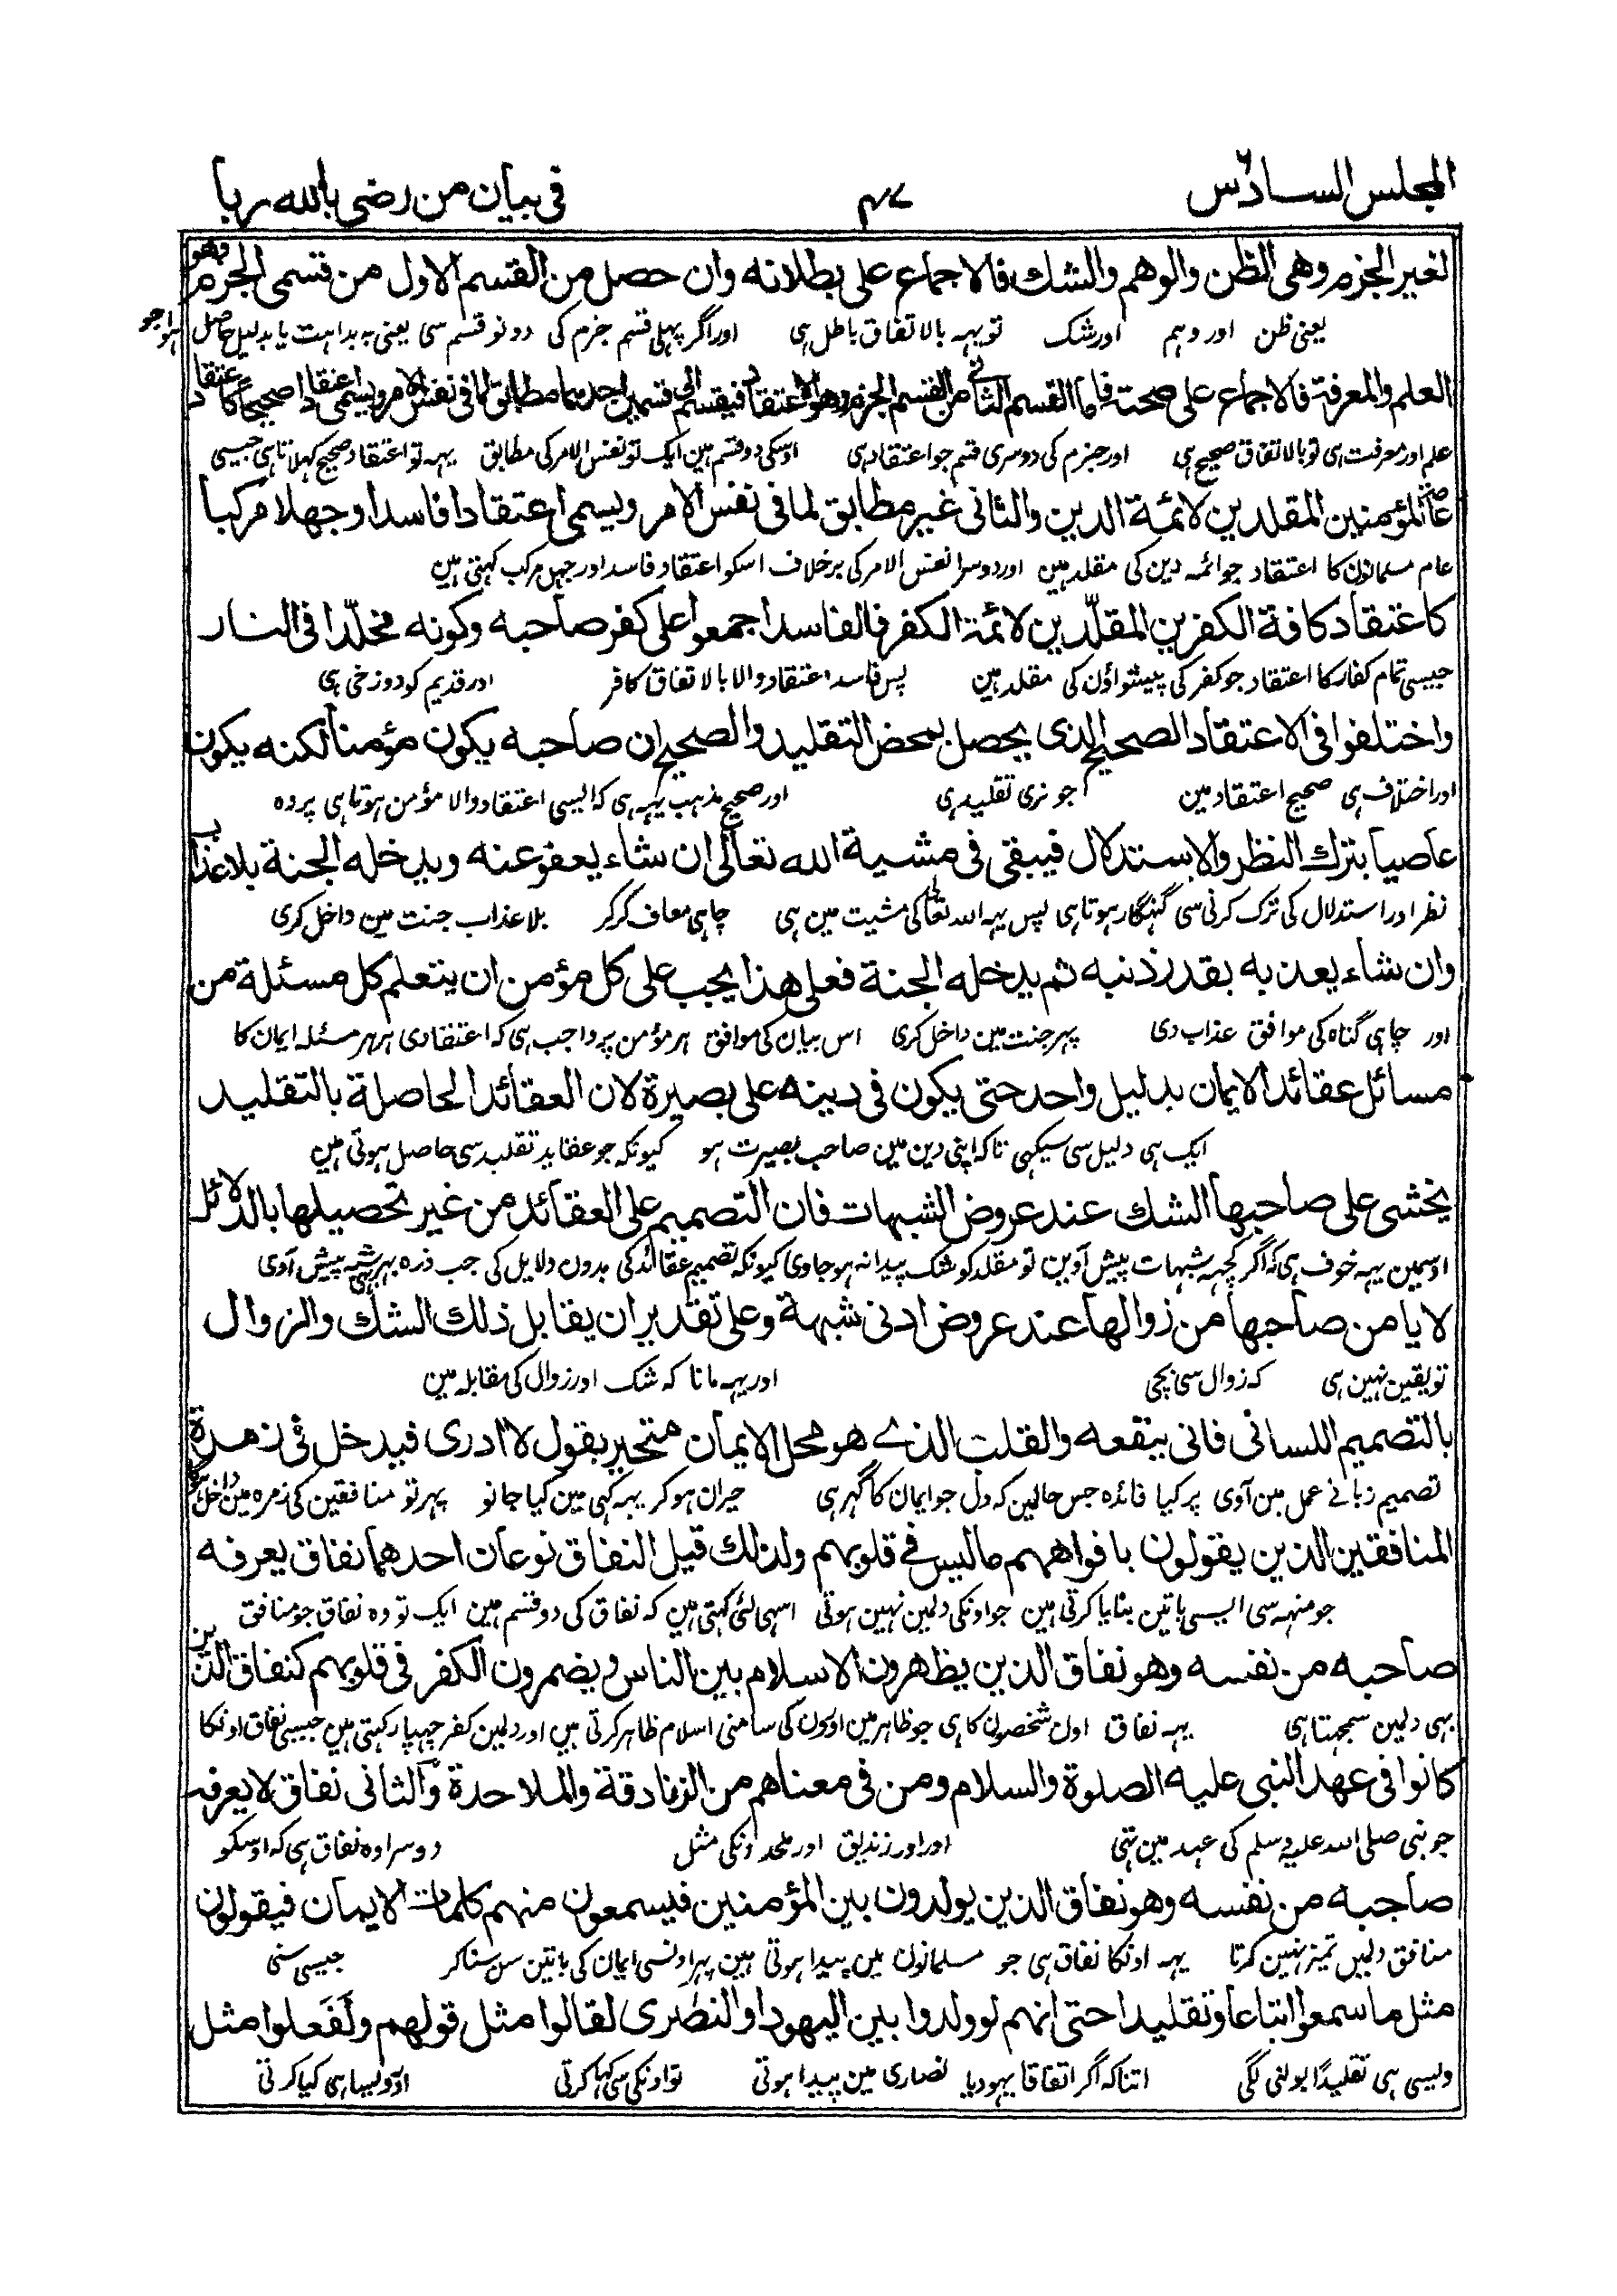 المجلس السادس
۴۷
فی بیان من رضی بالله ربا
لغیر الجزم وهی الظن والوهم والشك فالاجماع علی بطلانه وان حصل من القسم الاول من قسمی الجزم وهو
یعنی ظن اور وہم اور شک تو یہہ بالاتفاق باطل ہی اور اگر پہلی قسم جزم کی دونو قسم سی یعنی بہ بداہت یا بدلیل حاصل ہوا جو
العلم والمعرفة فالاجماع علی صحته فاما القسم الثانی من القسم الجزم وهو الاعتقاد فینقسم الی قسمین احدهما مطابق لما فی نفس الامر ویسمی اعتقادا صحیحا کاعتقاد
علم اور معرفت ہی تو بالاتفاق صحیح ہی اور جزم کی دوسری قسم جو اعتقاد ہی اوسکی دو قسم ہین ایک تو نفس الامر کی مطابق یہہ تو اعتقاد صحیح کہلاتا ہی جیسی
عامة المؤمنین المقلدین لائمة الدین والثانی غیر مطابق لما فی نفس الامر ویسمی اعتقادا فاسدا وجهلا مرکبا
عام مسلمانون کا اعتقاد جو ائمہ دین کی مقلد ہین اور دوسرا نفس الامر کی برخلاف اسکو اعتقاد فاسد اور جہل مرکب کہتی ہین
کاعتقاد کافة الکفرین المقلّدین لائمة الکفر فالفاسد اجمعوا علی کفر صاحبه وکونه مخلّدا فی النار
جیسی تمام کفار کا اعتقاد جو کفر کی پیشواؤن کی مقلد ہین پس فاسد اعتقاد والا بالاتفاق کافر اور قدیم کو دوزخی ہی
واختلفوا فی الاعتقاد الصحیح الذی یحصل بمحض التقلید والصحیح ان صاحبه یکون مؤمنا لکنه یکون
اور اختلاف ہی صحیح اعتقاد مین جو نری تقلید ہی اور صحیح مذہب یہہ ہی کہ ایسی اعتقاد والا مؤمن ہوتا ہی پر وہ
عاصیا بترك النظر والاستدلال فیبقی فی مشیة الله تعالی ان شاء یعفو عنه ویدخله الجنة بلا عذاب
نظر اور استدلال کی ترک کرنی سی گنہگار ہوتا ہی پس یہہ الله تعالی کی مشیت مین ہی چاہی معاف کرکر بلا عذاب جنت مین داخل کری
وان شاء یعذبه بقدر ذنبه ثم یدخله الجنة فعلی هذا یجب علی کل مؤمن ان یتعلم کل مسئلة من
اور چاہی گناہ کی موافق عذاب دی پہر جنت مین داخل کری اس بیان کی موافق ہر مؤمن پر واجب ہی کہ اعتقادی ہر ہر مسئلہ ایمان کا
مسائل عقائد الایمان بدلیل واحد حتی یکون فی دینه علی بصیرة لان العقائد الحاصلة بالتقلید
ایک ہی دلیل سی سیکہی تاکہ اپنی دین مین صاحب بصیرت ہو کیونکہ جو عقاید تقلید سی حاصل ہوتی ہین
یخشی علی صاحبها الشك عند عروض الشبهات فان التصمیم علی العقائد من غیر تحصیلها بالدلائل
اوسمین یہہ خوف ہی کہ اگر کچہہ شبہات پیش آوین تو مقلد کو شک پیدا نہ ہو جاوی کیونکہ تصمیم عقائد کی بدون دلایل کی جب ذرہ بہر بہی شبہہ پیش آوی
لا یامن صاحبها من زوالها عند عروض ادنی شبهة وعلی تقدیر ان یقابل ذلك الشك والزوال
تو یقین نہین ہی کہ زوال سی بچی اور یہہ مانا کہ شک اور زوال کی مقابلہ مین
بالتصمیم اللسانی فانی ینفعه والقلب الذے هو محل الایمان متحیر یقول لا ادری فیدخل فی زمرة
تصمیم زبانے عمل مین آوی پر کیا فائدہ جس حالمین کہ دل جو ایمان کا گہر ہی حیران ہو کر یہہ کہی مین کیا جانو پہر تو منافقین کی زمرہ مین داخل ہوگا
المنافقین الذین یقولون بافواههم مالیس فی قلوبهم ولذلك قیل النفاق نوعان احدهما نفاق یعرفه
جو منہہ سی ایسی باتین بنایا کرتی ہین جو اونکی دلمین نہین ہوتی اسہی لئی کہتی ہین کہ نفاق کی دو قسم ہین ایک تو وہ نفاق جو منافق
صاحبه من نفسه وهو نفاق الذین یظهرون الاسلام بین الناس ویضمرون الکفر فی قلوبهم کنفاق الذین
بہی دلمین سمجہتا ہی یہہ نفاق اون شخصون کا ہی جو ظاہر مین اورون کی سامنی اسلام ظاہر کرتی ہین اور دلمین کفر چہپا رکہتی ہین جیسی نفاق اونکا
کانوا فی عهد النبی علیه الصلوة والسلام ومن فی معناهم من الزنادقة والملاحدة والثانی نفاق لا یعرفه
جو نبی صلی الله علیہ وسلم کی عہد مین تہی اور اور زندیق اور ملحد اونکی مثل دوسرا وہ نفاق ہی کہ اوسکو
صاحبه من نفسه وهو نفاق الذین یولدون بین المؤمنین فیسمعون منهم کلمات الایمان فیقولون
منافق دلمین تمیز نہین کرتا یہہ اونکا نفاق ہی جو مسلمانون مین پیدا ہوتی ہین پہر اونسی ایمان کی باتین سن سناکر جیسی سنی
مثل ماسمعوا اتباعا وتقلیدا حتی انهم لو ولدوا بین الیهود او النصری لقالوا مثل قولهم ولفعلوا مثل
ویسی ہی تقلیدًا بولنی لگی اتنا کہ اگر اتفاقا یہود یا نصاری مین پیدا ہوتی تو اونکی سی کہا کرتی اور ویسا ہی کیا کرتی